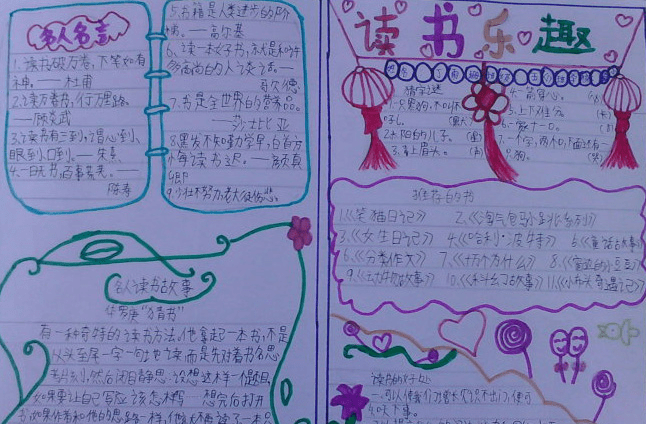 名人名言
1.读书破万卷,下笔如有
神。——杜甫
2.读万卷书,行万里路。
——顾炎武
3.读书有三到,谓心到、
眼到、口到。——朱熹
4.一日无书,百事荒芜。——
陈寿
5.书籍是人类进步的阶
梯。——高尔基
6.读一本好书,就是和许
多高尚的人谈话。——
歌德
7.书是全世界的营养品。
——莎士比亚
8.黑发不知勤学早,白首方
悔读书迟。——颜真
卿
9.少壮不努力,老大徒伤悲。
名人读书故事
华罗庚“猜书”
有一种奇特的读书方法,他拿起一本书,不是
从头至尾一字一句地读,而是先对着书名思
考片刻,然后闭目静思:设想这样一个题目,
如果要让自己写应该怎样写……想完后打开
书,如果作者和他的思路一样,他就不再读了一本
读书乐趣
猜字谜
4.一箭穿心。
3.上下难分。
6.一家十一口。
2.太阳的儿子。
推荐的书
1.《笑猫日记》 2.《淘气包马小跳系列》
3.《女生日记》 4.《哈利·波特》 5.《童话故事》
6.《分类作文》 7.《十万个为什么》 8.《窗边的小豆豆》
9.《 故事》 10.《科幻故事》 11.《小布头奇遇记》
读书的好处
一.可以使我们增长知识不出门,便可
知天下事。